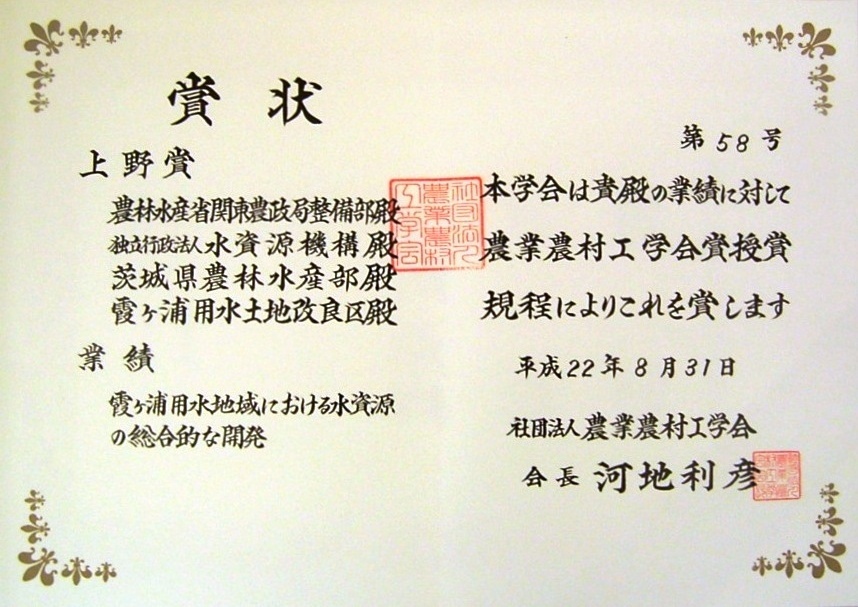 賞状
上野賞
農林水産省関東農政局整備部殿
独立行政法人水資源機構殿
茨城県農林水産部殿
霞ヶ浦用水土地改良区殿
業績
霞ヶ浦用水地域における水資源
の総合的な開発
第58号
本学会は貴殿の業績に対して
農業農村工学会賞授賞
規程によりこれを賞します
平成22年8月31日
社団法人農業農村工学会
会長 河地利彦
社団法人
農業農村
工学会